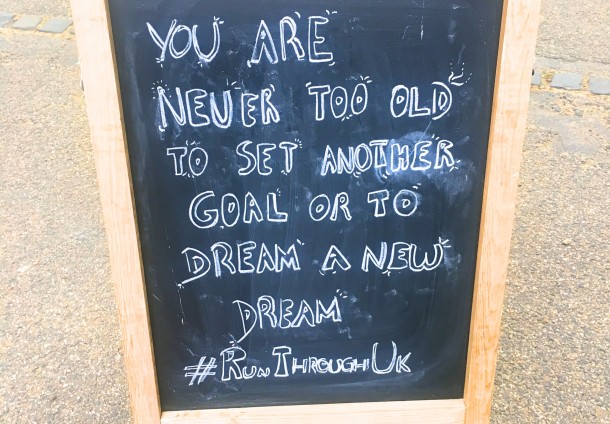 YOU ARE
NEVER TOO OLD
TO SET ANOTHER
GOAL OR TO
DREAM A NEW
DREAM
#RUNTHROUGHUK